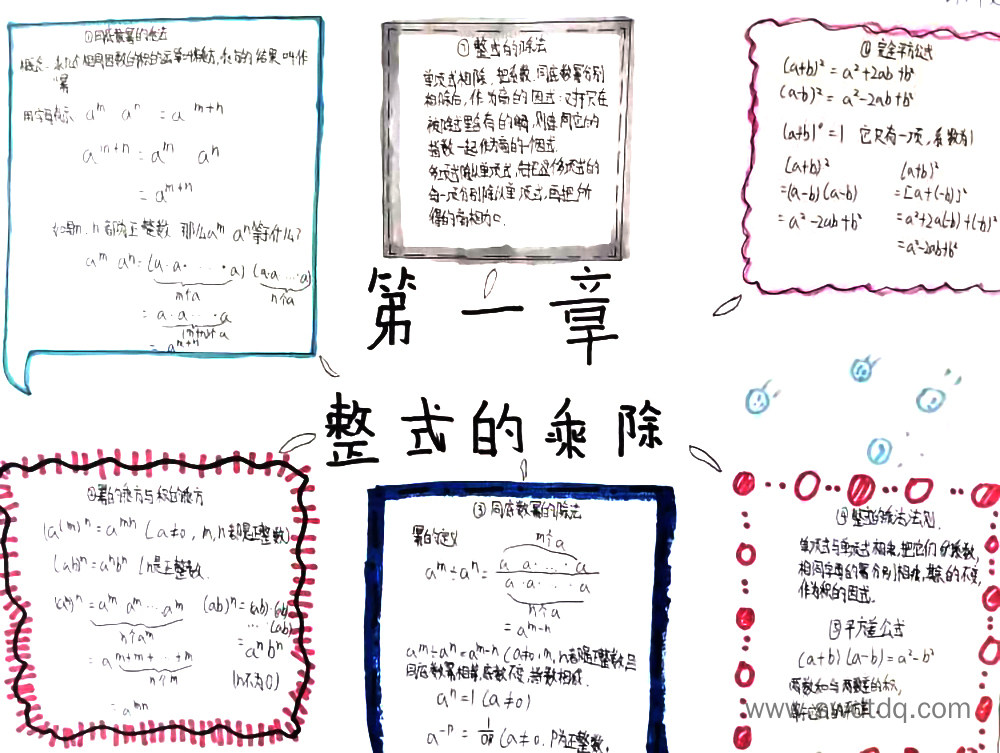 ①同底数幂的乘法
概念:求几个相同因数的积的运算叫乘方,乘方的结果叫作
幂
用字母表示 aᵐ aⁿ = aᵐ⁺ⁿ
aᵐ⁺ⁿ = aᵐ aⁿ
= aᵐ⁺ⁿ
如果m、n都为正整数 那么aᵐ aⁿ等于什么?
aᵐ aⁿ = (a·a·……·a) (a·a…·a)
m个a n个a
= a·a·…·a
(m+n)个a
= aᵐ⁺ⁿ
⑦整式的除法
单项式相除,把系数、同底数幂分别
相除后,作为商的因式:对于只在
被除式里含有的
指数一起作为商的一个因式.
多项式除以单项式,先把这个多项式的
每一项分别除以单项式,再把所
得的商相加.
⑥完全平方公式
(a+b)²=a²+2ab+b²
(a-b)²=a²-2ab+b²
(a+b)⁰=1 它只有一项,系数为1
(a+b)² (a+b)²
=(a-b)(a-b) =[a+(-b)]²
=a²-2ab+b² =a²+2a(-b)+(-b)²
=a²-2ab+b²
第一章
整式的乘除
②幂的乘方与积的乘方
(a⁽ᵐ⁾)ⁿ=aᵐⁿ (a≠0,m,n都是正整数)
(ab)ⁿ=aⁿbⁿ (n是正整数.
(aᵐ)ⁿ=aᵐ aᵐ…aᵐ (ab)ⁿ=(ab)·(ab)
n个aᵐ …(ab)
=aᵐ⁺ᵐ⁺…⁺ᵐ =aⁿbⁿ
n个m (n不为0)
=aᵐⁿ
③同底数幂的除法
幂的定义 m个a
aᵐ÷aⁿ= a a·…·a
a·a·…·a
n个a
=aᵐ⁻ⁿ
aᵐ÷aⁿ=aᵐ⁻ⁿ (a≠0,m,n都是正整数,且
同底数幂相除,底数不变,指数相减.
aⁿ=1 (a≠0)
a⁻ᵖ= (a≠0,P为正整数.
④整式的乘法法则.
单项式与单项式相乘,把它们的系数,
相同字母的幂分别相乘,其余的不变,
作为积的因式.
⑤平方差公式
(a+b)(a-b)=a²-b²
两数和与两数差的积,